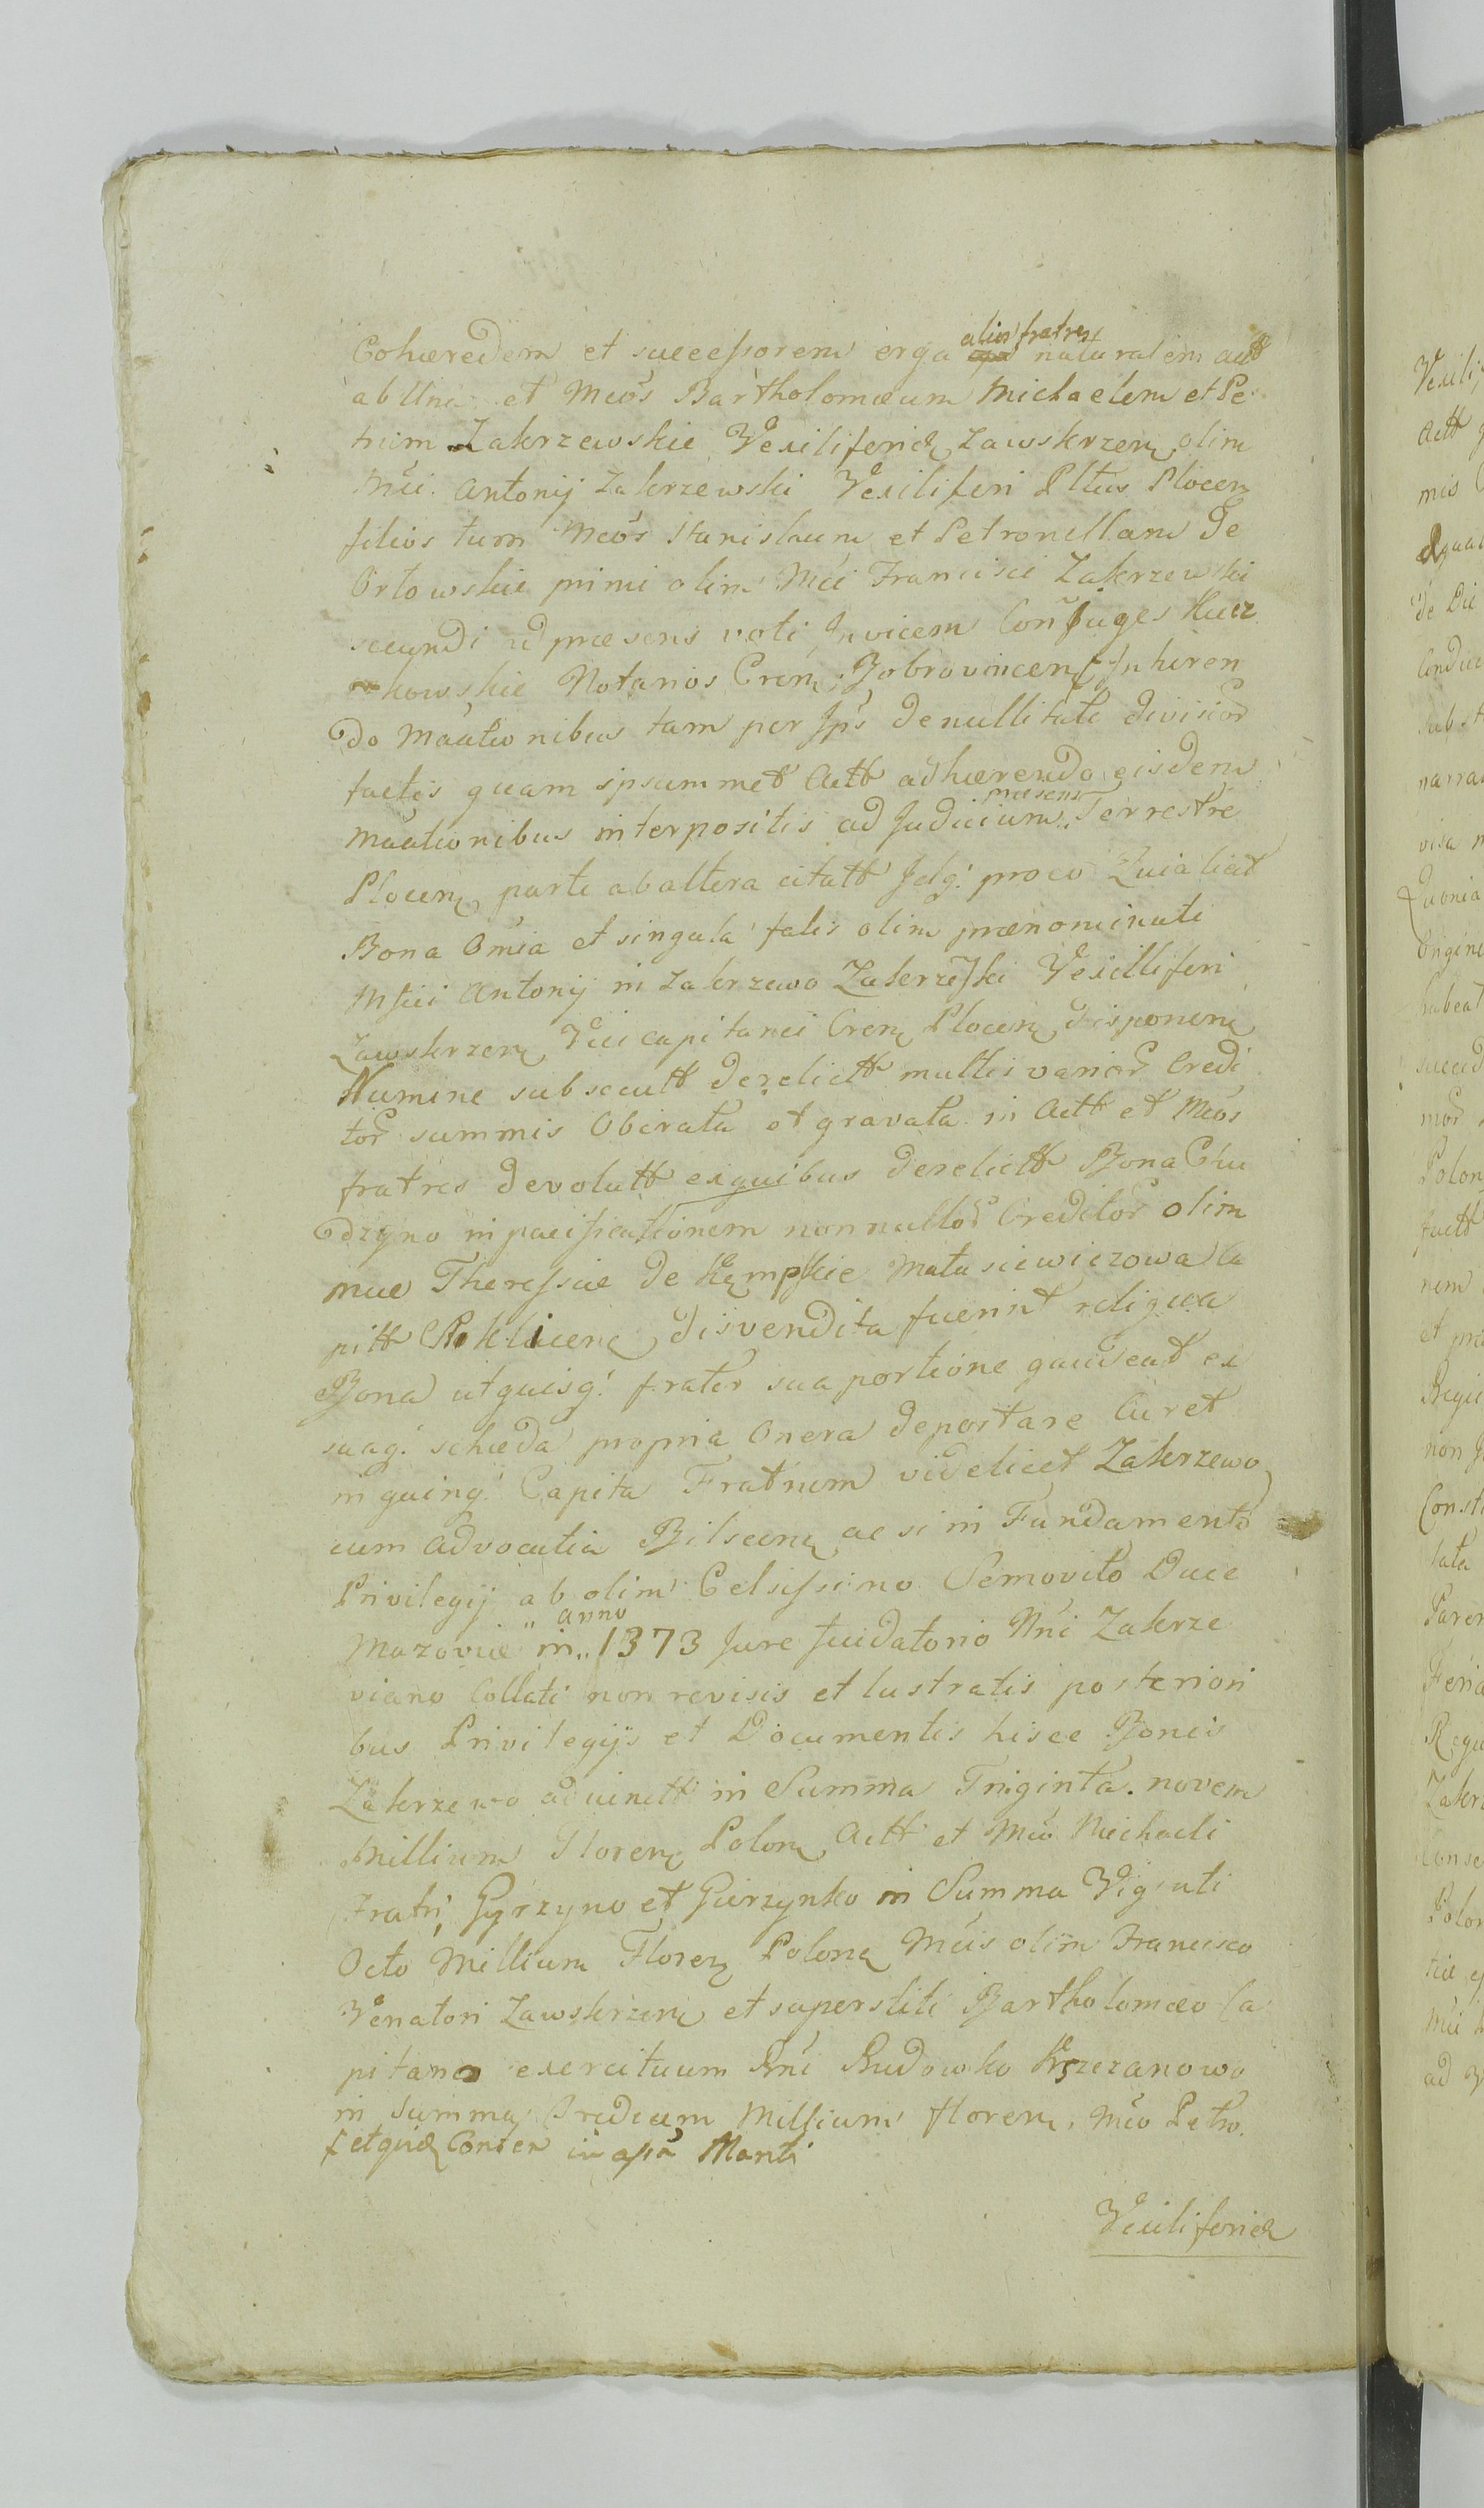 Cohæredem et successorem erga alios fratres naturalem actt
ab Una et Mcos Bartholomæum Michaelem et Pe
trum Zakrzewskie Vexiliferid Zawskrzen olim
Mci Antonij Zakrzewski Vexiliferi Pltus Plocen
filios tum Mcos Stanislaum et Petronellam de
Orłowskie primi olim Mci Francisci Zakrzewski
secundi ad præsens voti Invicem Conjuges
kowskie Notarios Cren Bobrovincen Inhæren
do Maationibus tam per Ips de nullitate division
factis quam ipsummet Actt adhærendo eisdem
Maationibus interpositis ad Judicium præsens Terrestre
Plocen parte ab altera citatt Idq: pro eo Quia licet
Bona Omia et singula fatis olim prænominati
Mfici Antonij in Zakrzewo Zakrzeski Vexilliferi
Zawskrzen Vicecapitanei Cren Plocen disponen
Numine subsecutt derelictt multis varior Credi
tor summis Obærata et gravata in Actt et Mcos
fratres devolutt ex quibus derelictt Bona Chu
dzyno in pacificationem nonnullor Creditor olim
Mcæ Theressiæ de Kempskie Matusiewiczowa Ca
pitt Rokicien disvendita fuerint reliqua
Bona ut quisq: frater sua portione gaudeat ex
suaq: schæda propria Onera deportare Curet
in quinq: Capita Fratrum videlicet Zakrzewo
cum Advocatia Bilscen ac si in Fundamento
Privilegij ab olim Celsissimo Semovito Duce
Mazoviæ in anno 1373 Jure feudatorio Nni Zakrze
viano Collati non revisis et lustratis posteriori
bus Privilegijs et Documentis hisce Bonis
Zakrzewo advinctt in Summa Triginta novem
Millium Floren Polon Actt et Mco Michaeli
Fratri, Gyrzyno et Gierzynko in Summa Viginti
Octo Millium Floren Polon Mcis olim Francisco
Venatori Zawskrzen et superstiti Bartholomæo Ca
pitaneo exercituum Rni Rudowko Krzczanowo
in Summa Tredecim Millium floren Mco Petro
Vexiliferid